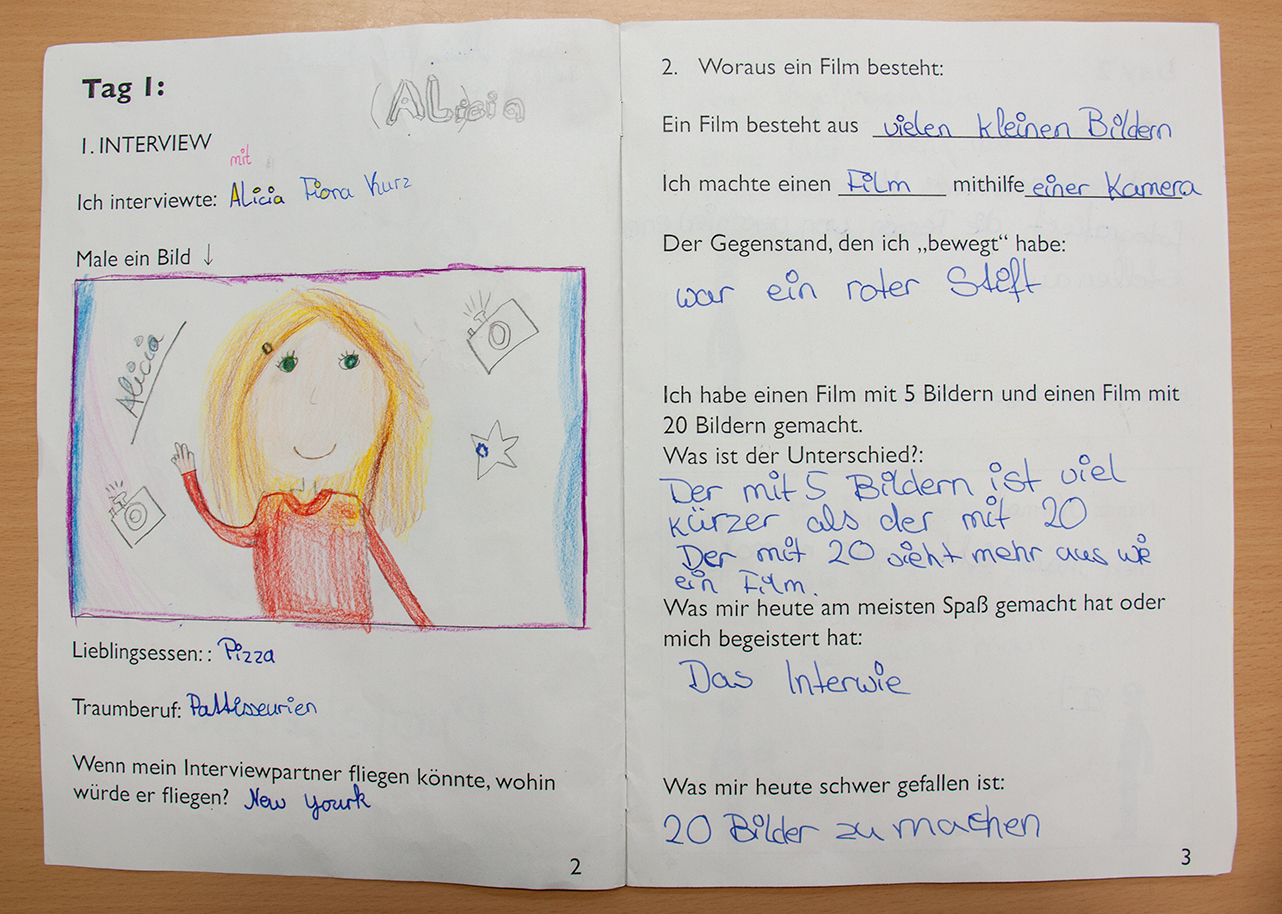 Tag 1:
(ALicia
1. INTERVIEW
mit
Ich interviewte: Alicia Fiona Kurz
Male ein Bild ↓
Alicia
Lieblingsessen: : Pizza
Traumberuf: Pattisseurien
Wenn mein Interviewpartner fliegen könnte, wohin
würde er fliegen? New yourk
2
2. Woraus ein Film besteht:
Ein Film besteht aus vielen kleinen Bildern
Ich machte einen Film mithilfe einer Kamera
Der Gegenstand, den ich „bewegt“ habe:
war ein roter Stift
Ich habe einen Film mit 5 Bildern und einen Film mit
20 Bildern gemacht.
Was ist der Unterschied?:
Der mit 5 Bildern ist viel
kürzer als der mit 20
Der mit 20 sieht mehr aus wie
ein Film.
Was mir heute am meisten Spaß gemacht hat oder
mich begeistert hat:
Das Interwie
Was mir heute schwer gefallen ist:
20 Bilder zu machen
3